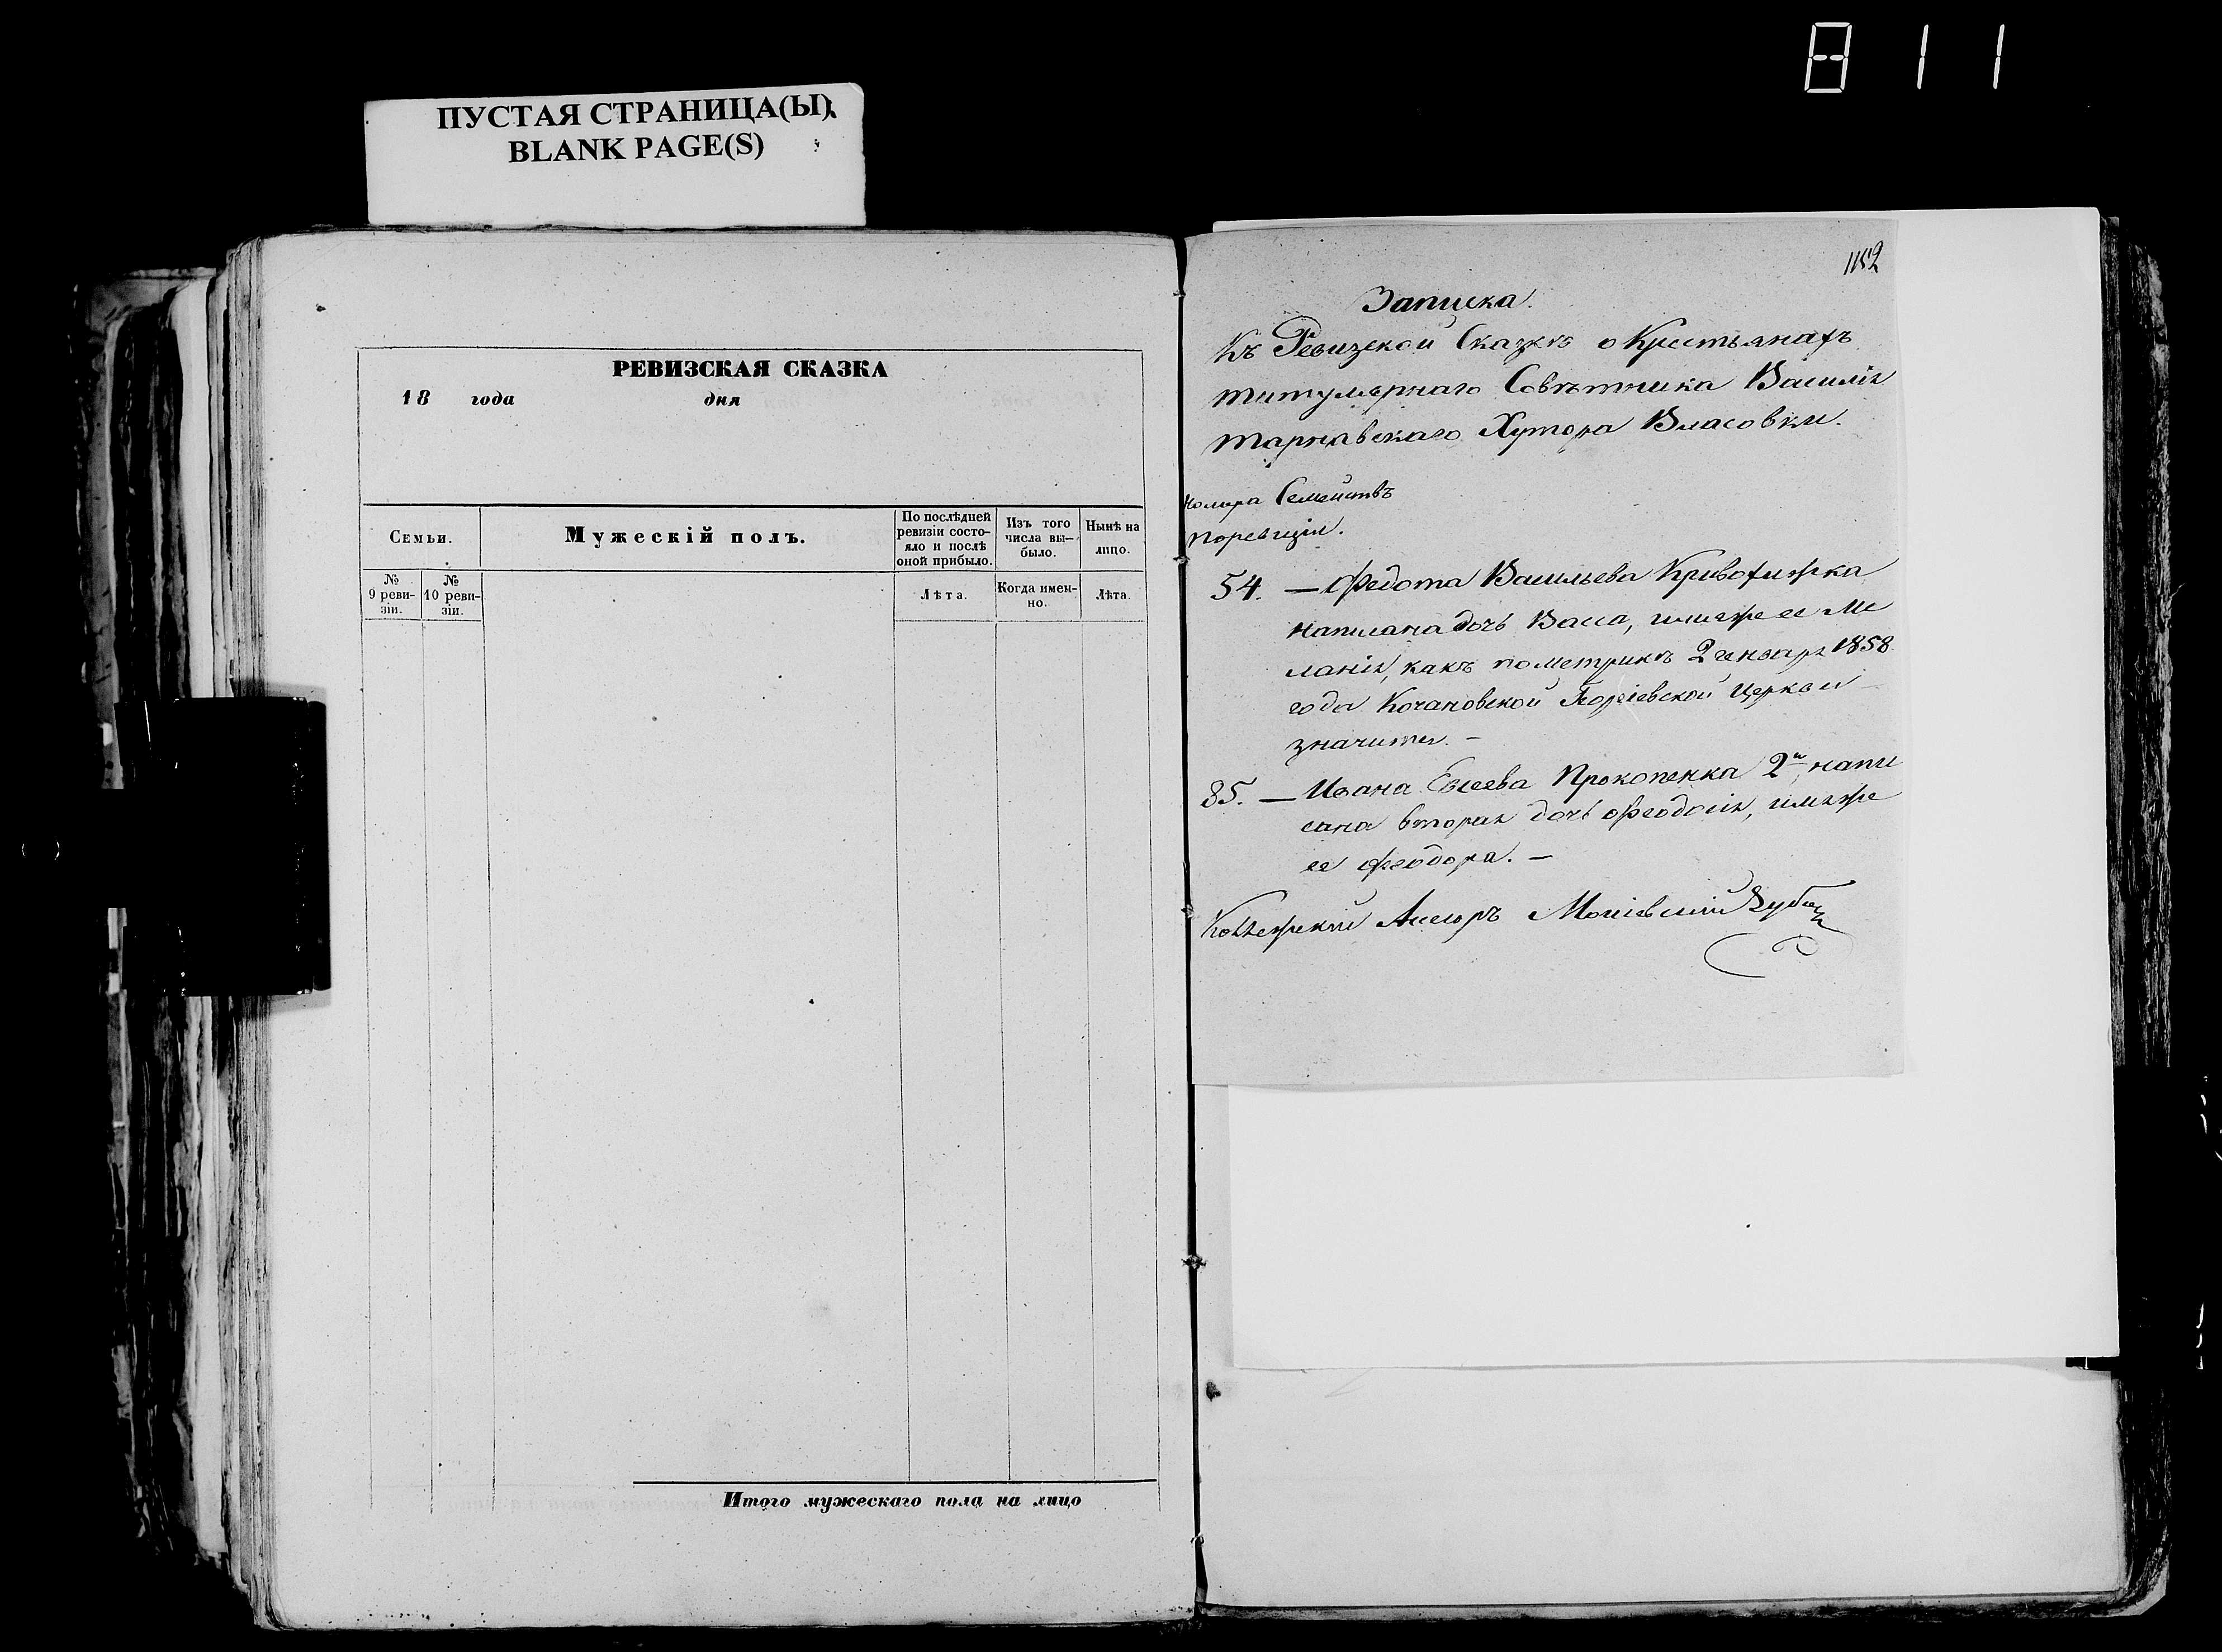 811
ПУСТАЯ СТРАНИЦА(Ы)
BLANK PAGE(S)
РЕВИЗСКАЯ СКАЗКА
18 года дня
Семьи.
Мужескій полъ.
По послѣдней
ревизіи состо-
яло и послѣ
оной прибыло.
Изъ того
числа вы-
было.
Нынѣ на
лицо.
№
9 реви-
зіи.
№
10 реви-
зіи.
Лѣта.
Когда имен-
но.
Лѣта.
Итого мужескаго пола на лицо
1152
Записка.
Къ Ревизской Сказкѣ о Крестьянахъ
титулярнаго Совѣтника Василія
Тарнавскаго Хутора Власовки.
Номера Семействъ
по ревизіи.
54. — Федота Васильева Кривохижка
написана дочь Васса, имя же ее Ме
ланія, какъ по метрикѣ 2 генваря 1858
года Кочановской Георгіевской церкви
значится. —
85. — Ивана Евсеева Прокопенка 2й, напи
сана вторая дочь Феодосія, имя же
ее Феодора. —
Колежскій Асесоръ